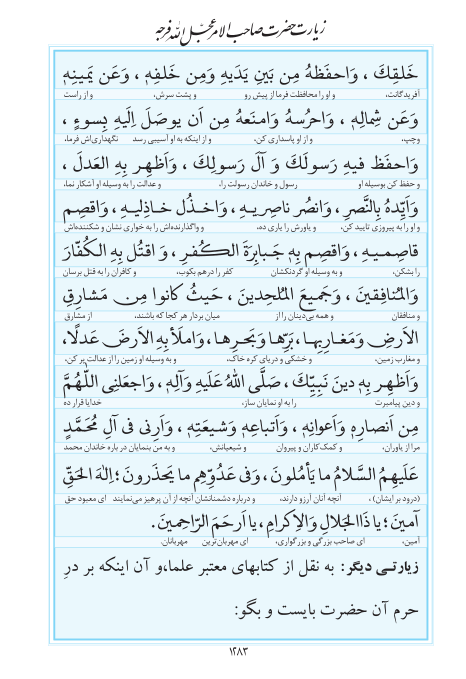 زیارت حضرت صاحب الامر عجل الله فرجه
خَلقِكَ ، وَاحفَظهُ مِن بَينِ يَدَيهِ وَمِن خَلفِهِ ، وَعَن يَمينِهِ
آفریدگانت، و او را محافظت فرما از پیش رو و پشت سرش، و از راست
وَعَن شِمالِهِ ، وَاحرُسهُ وَامنَعهُ مِن اَن يوصَلَ اِلَيهِ بِسوءٍ ،
وچپ، و از او پاسداری کن، و از اینکه به او آسیبی رسد نگهداری‌اش فرما،
وَاحفَظ فيهِ رَسولَكَ وَ آلَ رَسولِكَ ، وَاَظهِر بِهِ العَدلَ ،
و حفظ کن بوسیله او رسول و خاندان رسولت را، و عدالت را به وسیله او آشکار نما،
وَاَيِّدهُ بِالنَّصرِ ، وَانصُر ناصِريهِ ، وَاخذُل خاذِليهِ ، وَاقصِم
و او را به پیروزی تایید کن، و یاورش را یاری ده، و واگذارنده‌اش را به خواری نشان و شکننده‌اش
قاصِميهِ ، وَاقصِم بِهِ جَبابِرَةَ الكُفرِ ، وَ اقتُل بِهِ الكُفّارَ
را بشکن، و به وسیله او گردنکشان کفر را درهم بکوب، و کافران را به قتل برسان
وَالمُنافِقينَ ، وَجَميعَ المُلحِدينَ ، حَيثُ كانوا مِن مَشارِقِ
و منافقان و همه بی‌دینان را از میان بردار هر کجا که باشند، از مشارق
الاَرضِ وَمَغارِبِها ، بَرِّها وَبَحرِها ، وَاملَأ بِهِ الاَرضَ عَدلًا،
و مغارب زمین، و خشکی و دریای کره خاک، و به وسیله او زمین را از عدالت پر کن،
وَاَظهِر بِهِ دينَ نَبِيِّكَ ، صَلَّى اللهُ عَلَيهِ وَآلِهِ ، وَاجعَلنِى اللّهُمَّ
و دین پیامبرت را به او نمایان ساز، خدایا قرار ده
مِن اَنصارِهِ وَاَعوانِهِ ، وَاَتباعِهِ وَشيعَتِهِ ، وَاَرِنى فى آلِ مُحَمَّدٍ
مرا از یاوران، و کمک کاران و پیروان و شیعیانش، و به من بنمایان در باره خاندان محمد
عَلَيهِمُ السَّلامُ ما يَأمُلونَ ، وَفى عَدُوِّهِم ما يَحذَرونَ ؛ اِلهَ الحَقِّ
(درود بر ایشان) ، آنچه آنان آرزو دارند، و درباره دشمنانشان آنچه از آن پرهیز می‌نمایند ای معبود حق
آمينَ ؛ يا ذَا الجَلالِ وَالاِكرامِ ، يا اَرحَمَ الرّاحِمينَ.
آمین، ای صاحب بزرگی و بزرگواری، ای مهربان‌ترین مهربانان.
زیارتی دیگر: به نقل از کتابهای معتبر علماء، و آن اینکه بر درِ
حرم آن حضرت بایست و بگو:
۱۲۸۳